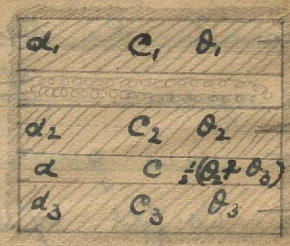 d₁ C₁ θ₁
d₂ C₂ θ₂
d C ½(θ₂+θ₃)
d₃ C₃ θ₃